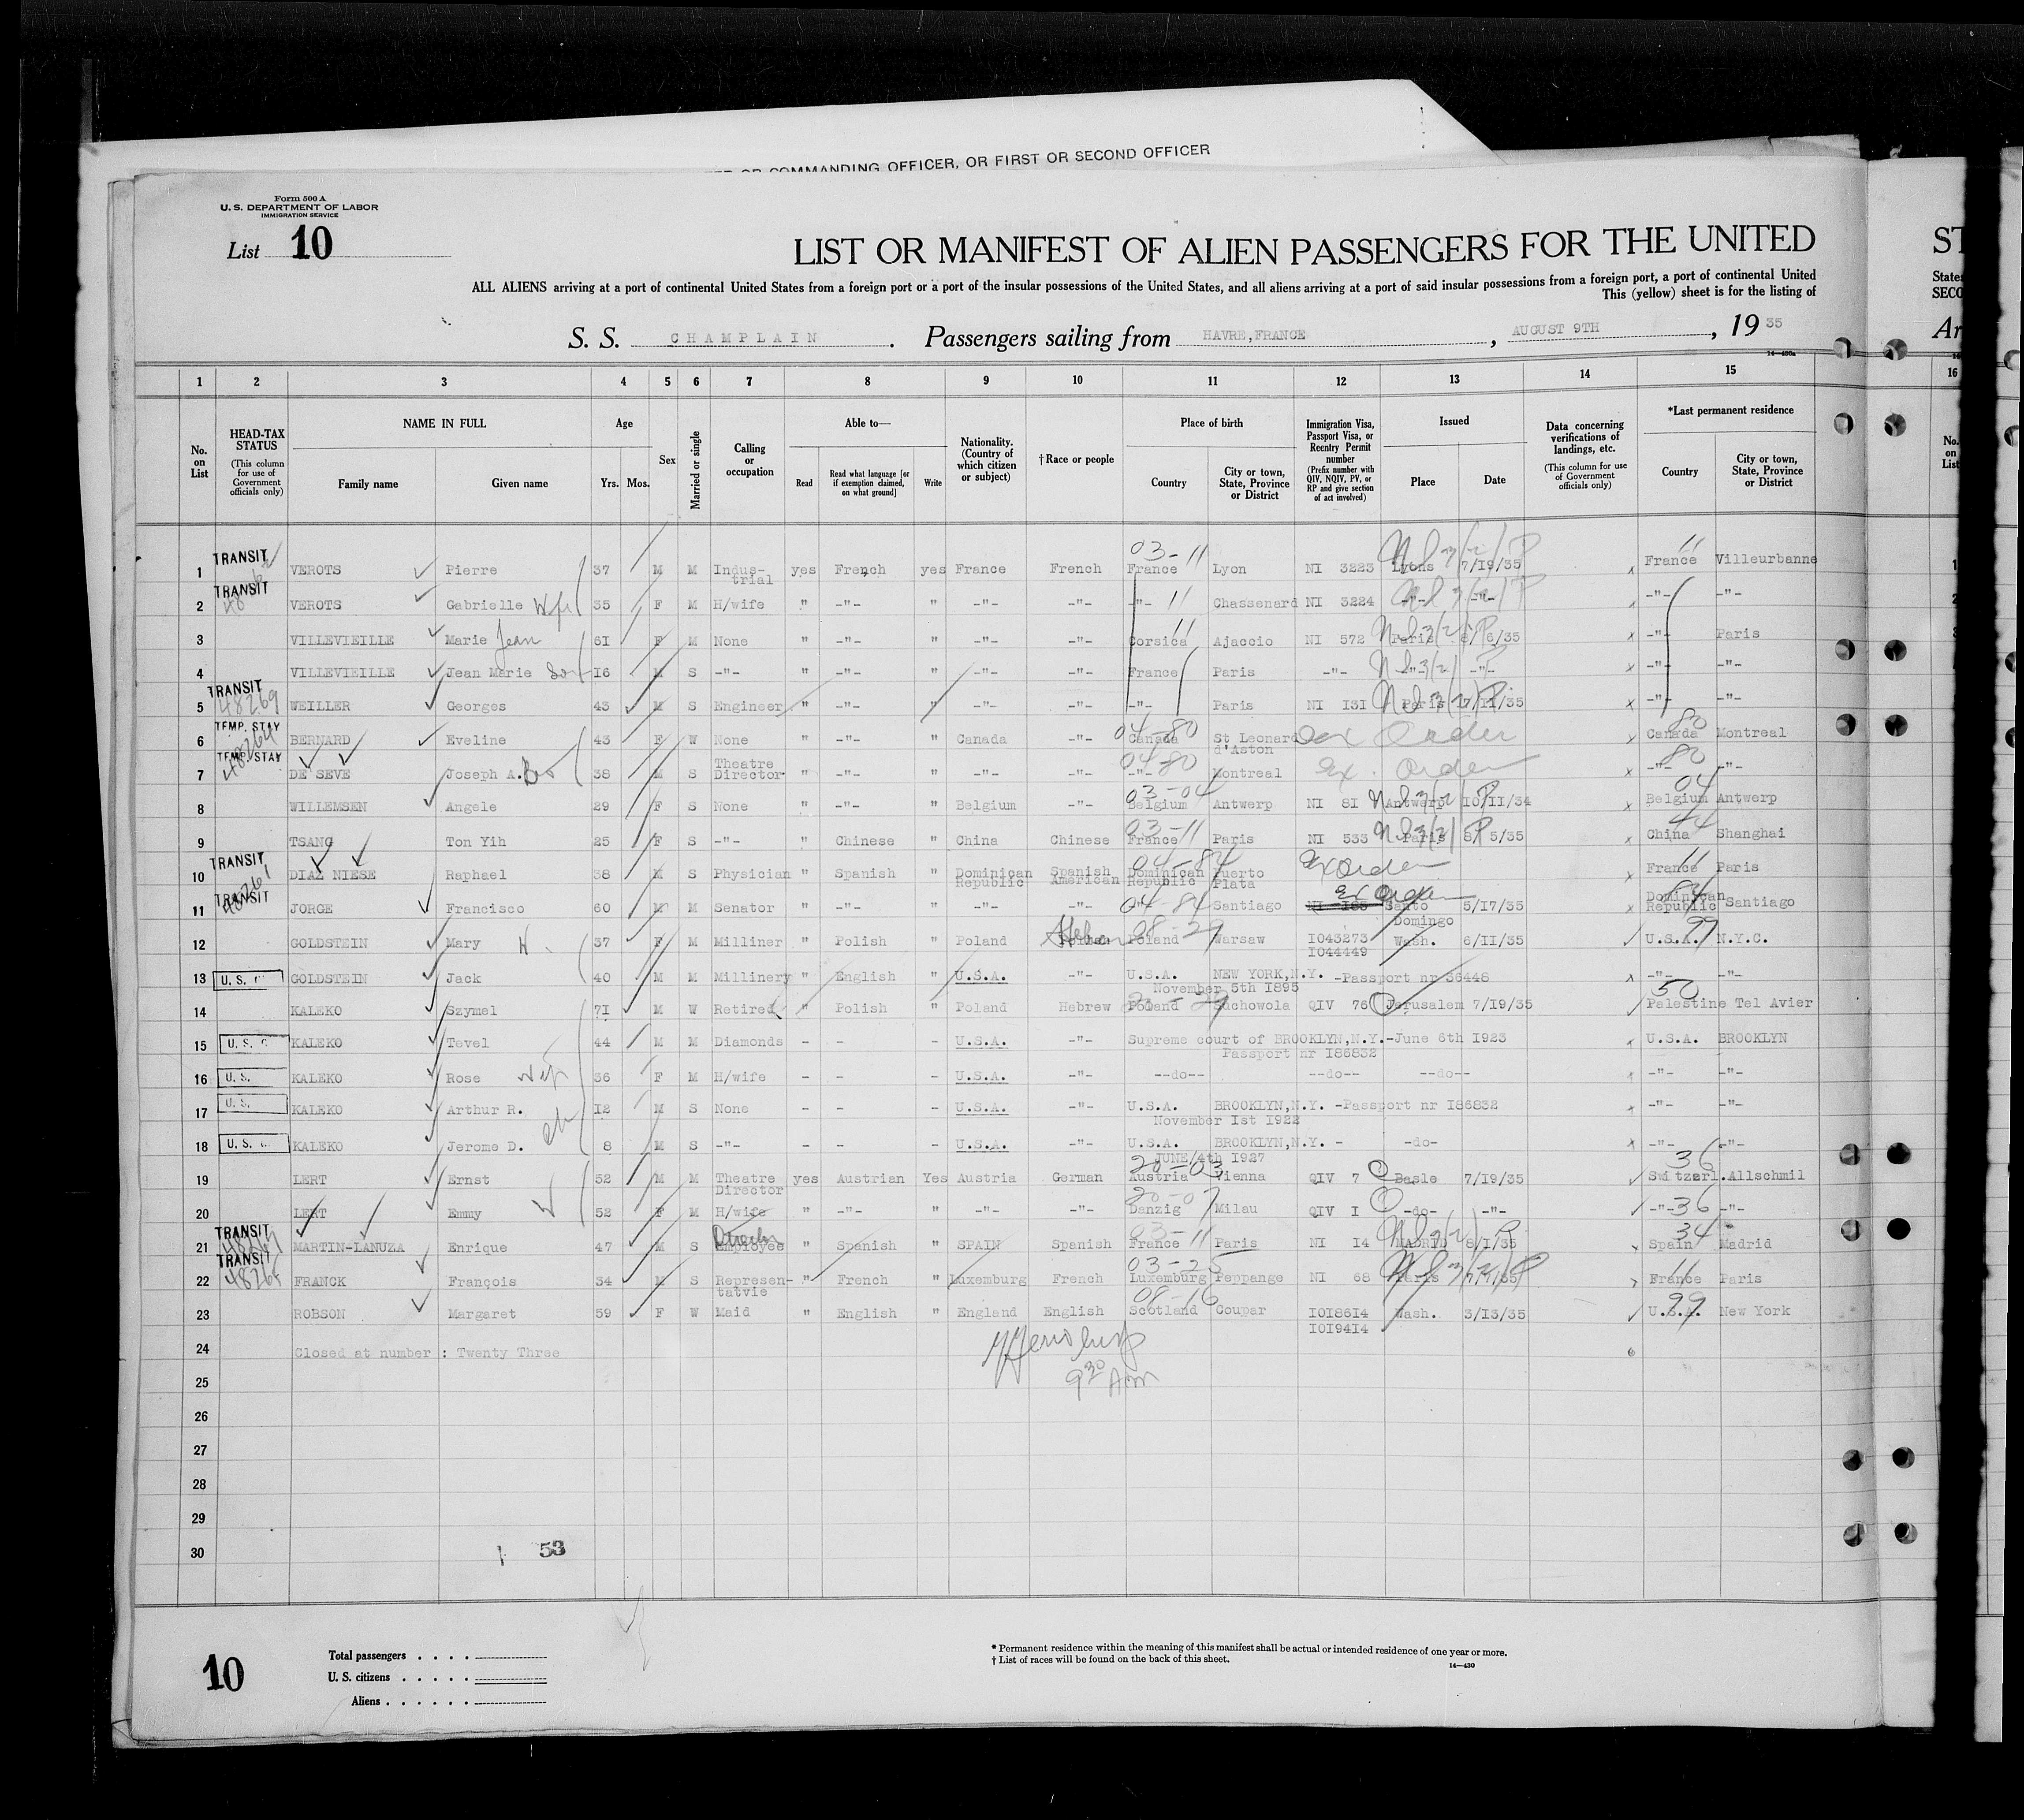 OR COMMANDING OFFICER, OR FIRST OR SECOND OFFICER
Form 500 A
U. S. DEPARTMENT OF LABOR
IMMIGRATION SERVICE
List 10
LIST OR MANIFEST OF ALIEN PASSENGERS FOR THE UNITED ST
ALL ALIENS arriving at a port of continental United States from a foreign port or a port of the insular possessions of the United States, and all aliens arriving at a port of said insular possessions from a foreign port, a port of continental United States
This (yellow) sheet is for the listing of SECO
S. S. CHAMPLAIN. Passengers sailing from HAVRE, FRANCE, AUGUST 9TH, 19 35 Ar
14—430a
1 2 3 4 5 6 7 8 9 10 11 12 13 14 15 16
No. on List
HEAD-TAX STATUS (This column for use of Government officials only)
NAME IN FULL Family name Given name
Age Yrs. Mos.
Sex
Married or single
Calling or occupation
Able to— Read Read what language [or if exemption claimed, on what ground] Write
Nationality. (Country of which citizen or subject)
† Race or people
Place of birth Country City or town, State, Province or District
Immigration Visa, Passport Visa, or Reentry Permit number (Prefix number with QIV, NQIV, PV, or RP and give section of act involved)
Issued Place Date
Data concerning verifications of landings, etc. (This column for use of Government officials only)
*Last permanent residence Country City or town, State, Province or District
No. on List
1 TRANSIT VEROTS Pierre 37 M M Indus-trial yes French yes France French 03-11 France Lyon NI 3223 Lyons 7/19/35 11 France Villeurbanne
2 TRANSIT VEROTS Gabrielle Wife 35 F M H/wife " -"- " -"- -"- -"- 11 Chassenard NI 3224 -"- -"- -"- -"-
3 VILLEVIEILLE Marie Jean 61 F M None " -"- " -"- -"- Corsica 11 Ajaccio NI 572 Paris 8/6/35 -"- Paris
4 VILLEVIEILLE Jean Marie Son 16 M S -"- " -"- " -"- -"- France Paris -"- -"- -"- -"- -"-
5 TRANSIT 48269 WEILLER Georges 43 M S Engineer " -"- " -"- -"- -"- Paris NI 131 Paris 7/11/35 -"- -"-
6 TEMP. STAY BERNARD Eveline 43 F W None " -"- " Canada -"- 04-80 Canada St Leonard d'Aston Ex Order 80 Canada Montreal
7 TEMP. STAY DE SEVE Joseph A. Bro 38 M S Theatre Director " -"- " -"- -"- 04-80 -"- Montreal Ex. Order 80 -"- -"-
8 WILLEMSEN Angele 29 F S None " -"- " Belgium -"- 03-04 Belgium Antwerp NI 81 Antwerp 10/11/34 04 Belgium Antwerp
9 TSANG Ton Yih 25 F S -"- " Chinese " China Chinese 03-11 France Paris NI 533 Paris 8/5/35 44 China Shanghai
10 TRANSIT DIAZ NIESE Raphael 38 M S Physician " Spanish " Dominican Republic Spanish American 04-84 Dominican Republic Puerto Plata Ex Order 11 France Paris
11 TRANSIT JORGE Francisco 60 M M Senator " -"- " -"- -"- 04-84 Santiago Ex Order Santo Domingo 5/17/35 84 Dominican Republic Santiago
12 GOLDSTEIN Mary W. 37 F M Milliner " Polish " Poland Hebrew 08-29 Poland Warsaw 1043273 1044449 Wash. 6/11/35 99 U.S.A. N.Y.C.
13 U. S. C GOLDSTEIN Jack 40 M M Millinery " English " U.S.A. -"- U.S.A. NEW YORK, N.Y. -Passport nr 36448 -"- -"-
November 5th 1895
14 KALEKO Szymel 71 M W Retired " Polish " Poland Hebrew Poland Suchowola QIV 76 Jerusalem 7/19/35 50 Palestine Tel Avier
15 U. S. C KALEKO Tevel 44 M M Diamonds - - - U.S.A. -"- Supreme court of BROOKLYN, N.Y.-June 6th 1923 U.S.A. BROOKLYN
Passport nr 186832
16 U. S. KALEKO Rose Wife 36 F M H/wife - - - U.S.A. -"- --do-- --do-- --do-- -"- -"-
17 U. S. KALEKO Arthur R. 12 M S None - - - U.S.A. -"- U.S.A. BROOKLYN, N.Y. -Passport nr 186832 -"- -"-
November 1st 1922
18 U. S. C KALEKO Jerome D. ch 8 M S -"- - - - U.S.A. -"- U.S.A. BROOKLYN, N.Y. - -do- -"- -"-
JUNE/4th 1927
19 LERT Ernst 52 M M Theatre Director yes Austrian Yes Austria German 20-03 Austria Vienna QIV 7 Basle 7/19/35 36 Switzerl. Allschmil
20 LERT Emmy W 52 F M H/wife " -"- " -"- -"- 20-07 Danzig Milau QIV 1 -do- -"- -"- 36 -"-
21 TRANSIT MARTIN-LANUZA Enrique 47 M S Employee " Spanish " SPAIN Spanish 03-11 France Paris NI 14 MADRID 8/1/35 34 Spain Madrid
22 TRANSIT FRANCK François 34 M S Represen-tatvie " French " Luxemburg French 03-25 Luxemburg Peppange NI 68 Paris 11 France Paris
23 ROBSON Margaret 59 F W Maid " English " England English 08-16 Scotland Coupar 1018614 1019414 Wash. 3/13/35 99 U.S.A. New York
24 Closed at number : Twenty Three
9 30 Am
25
26
27
28
29
30
53
10
Total passengers
U. S. citizens
Aliens
* Permanent residence within the meaning of this manifest shall be actual or intended residence of one year or more.
† List of races will be found on the back of this sheet.
14—430